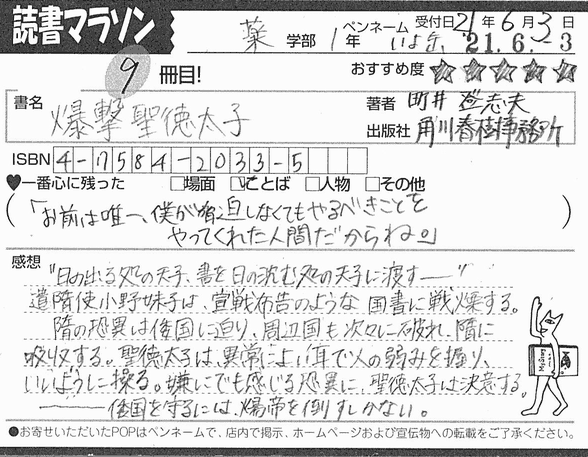 読書マラソン
薬 学部 1 年 ペンネーム いよ缶 受付日 21年 6月 3日
'21.6.-3
9 冊目!
おすすめ度 ★★★★★
書名 爆撃聖徳太子
著者 町井登志夫
出版社 角川春樹事務所
ISBN 4-7584-2033-5
♥一番心に残った □場面 ☑ことば □人物 □その他
「お前は唯一、僕が強迫しなくてもやるべきことを
やってくれた人間だからね。」
感想
"日の出る処の天子、書を日の沈む処の天子に渡す――"
遣隋使小野妹子は、宣戦布告のような国書に戦慄する。
隋の恐異は倭国に迫り、周辺国も次々に破れ、隋に
吸収する。聖徳太子は、異常によい耳で人の弱みを握り、
いいように操る。嫌にでも感じる恐異に、聖徳太子は決意する。
――倭国を守るには、煬帝を倒すしかない。
●お寄せいただいたPOPはペンネームで、店内で掲示、ホームページおよび宣伝物への転載をご了承ください。